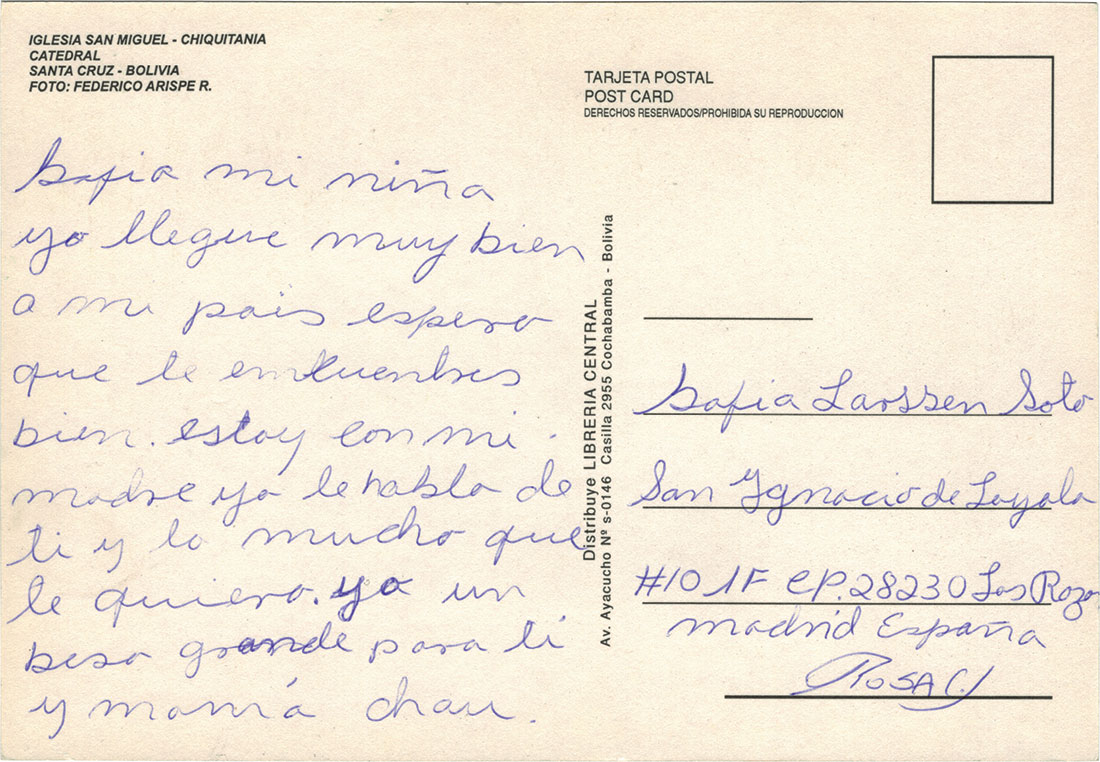 IGLESIA SAN MIGUEL - CHIQUITANIA
CATEDRAL
SANTA CRUZ - BOLIVIA
FOTO: FEDERICO ARISPE R.
Sofia mi niña
yo llegue muy bien
a mi pais espero
que te emcuentres
bien. estoy con mi
madre yo le hablo de
ti y lo mucho que
te quiero. yo un
beso grande para ti
y mamá chau.
Distribuye LIBRERIA CENTRAL
Av. Ayacucho Nº s-0146 Casilla 2955 Cochabamba - Bolivia
TARJETA POSTAL
POST CARD
DERECHOS RESERVADOS/PROHIBIDA SU REPRODUCCION
Sofia Larssen Soto
San Ygnacio de Loyola
#10 1F CP. 28230 Las Rozas
Madrid España
ROSA C.